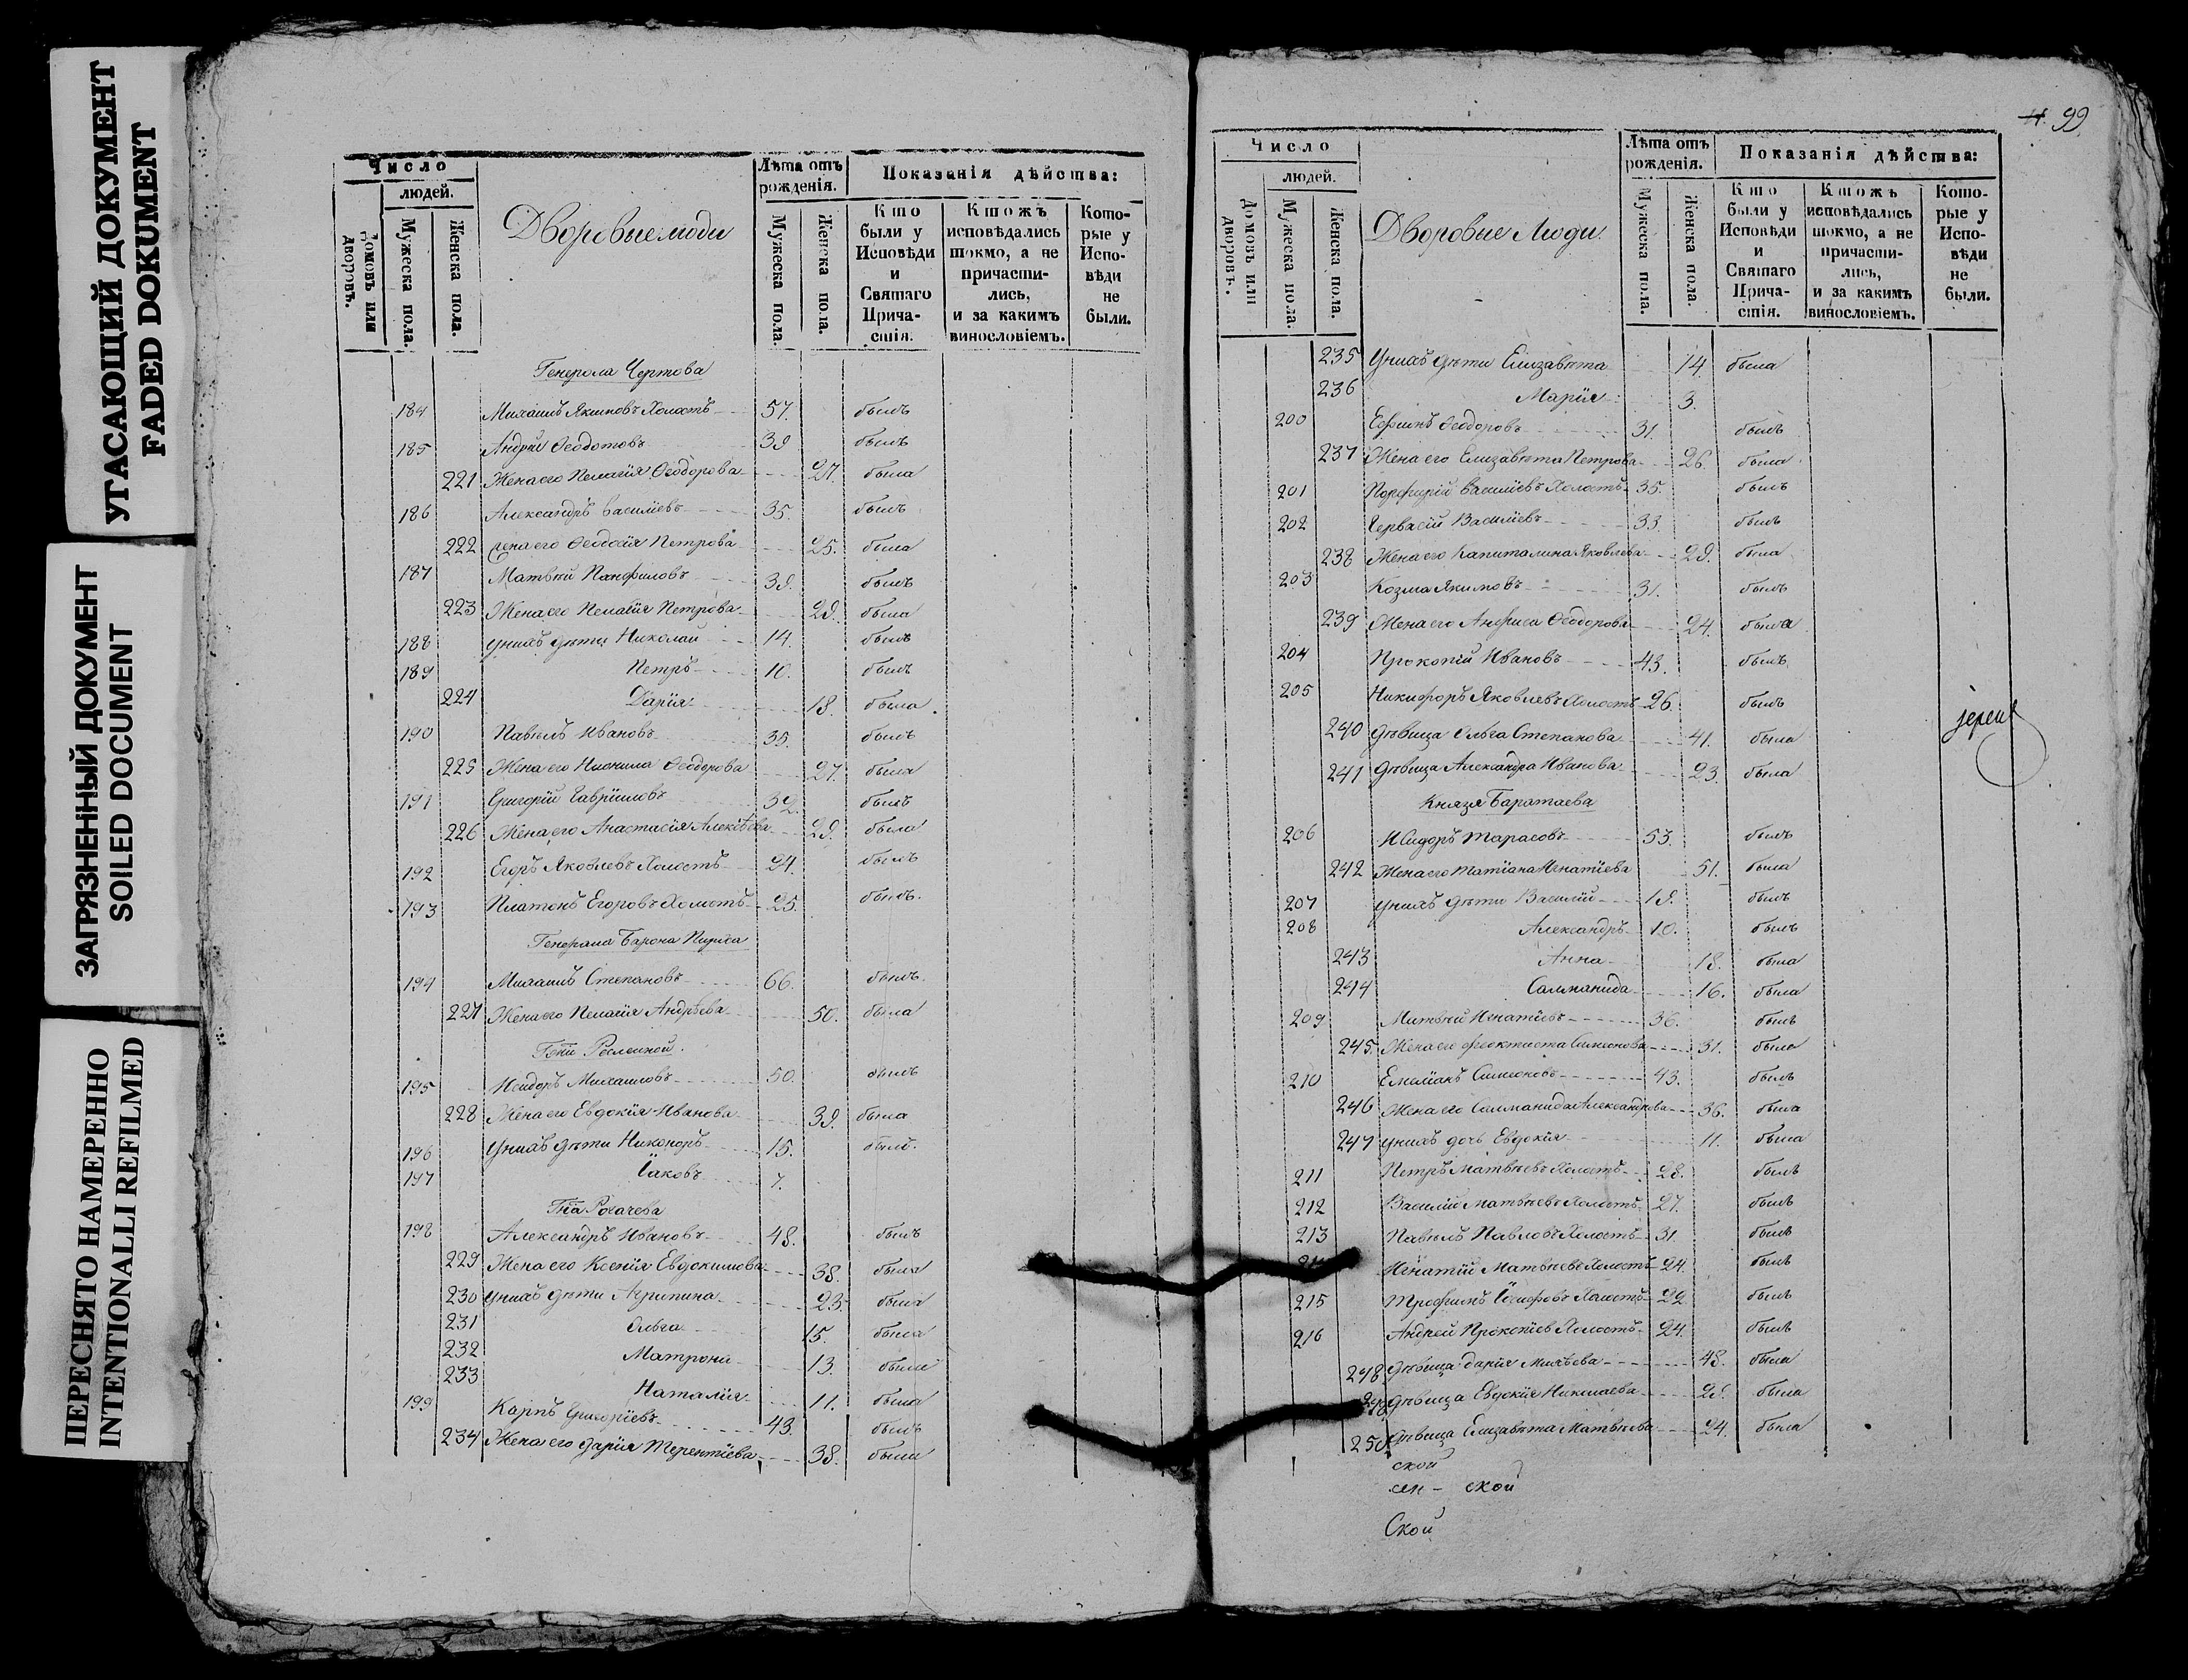 УТАСАЮЩИЙ ДОКУМЕНТ
FADED DOKUMENT
ЗАГРЯЗНЕННЫЙ ДОКУМЕНТ
SOILED DOCUMENT
ПЕРЕСНЯТО НАМЕРЕННО
INTENTIONALLI REFILMED
Число
людей.
Домовъ или дворовъ.
Мужеска пола.
Женска пола.
Дворовые люди
Лѣта отъ рожденія.
Мужеска пола.
Женска пола.
Показанія дѣйства:
Кто были у Исповѣди и Святаго Прича-стія.
Ктожъ исповѣдались токмо, а не причасти-лись, и за какимъ винословіемъ.
Кото-рые у Испо-вѣди не были.
Генерола Чертова
184 Михаилъ Якимовъ Холостъ 57. былъ
185 Андрей Ѳеодотовъ 39 былъ
221 Жена его Пелагія Ѳеодорова 27. была
186 Александръ Василіевъ 35. былъ
222 жена его Ѳеодосія Петрова 25. была
187 Матвѣй Панфиловъ 39. былъ
223 Жена его Пелагія Петрова 29. была
188 у нихъ дѣти Николай 14. былъ
189 Петръ 10. былъ
224 Дарія 18. была
190 Павелъ Ивановъ 35. былъ
225 Жена его Неонила Ѳеодорова 27. была
191 Григорій Гавріиловъ 32. былъ
226 Жена его Анастасія Алексѣева 29. была
192 Егоръ Яковлевъ Холостъ 24. былъ
193 Платонъ Егоровъ Холостъ 25. былъ.
Генерала Барона
194 Михаилъ Степановъ 66. былъ
227 Жена его Пелагія Андрѣева 50. была
195 Исидоръ Михаиловъ 50. былъ
228 Жена его Евдокія Иванова 39. была
196 У нихъ дѣти Никоноръ 15. былъ.
197 Іаковъ 7.
Гжа Рогачева
198 Александръ Ивановъ 48. былъ
229 Жена его Ксенія Евдокимова 38. была
230 у нихъ дѣти Агрипина 23. была
231 Ольга 15. была
232 Матрона 13. была
233 Наталія 11. была
199 Карпъ Григоріевъ 43. былъ
234 Жена его Дарія Терентіева 38. была
99
Число
людей.
Домовъ или дворовъ.
Мужеска пола.
Женска пола.
Дворовые Люди.
Лѣта отъ рожденія.
Мужеска пола.
Женска пола.
Показанія дѣйства:
Кто были у Исповѣди и Святаго Прича-стія.
Ктожъ исповѣдались токмо, а не причасти-лись, и за какимъ винословіемъ.
Кото-рые у Испо-вѣди не были.
235 У нихъ дѣти Елизавета 14. была
236 Марія 3.
200 Ефимъ Ѳеодоровъ 31. былъ
237 Жена его Елизавета Петрова 26. была
201 Порфирій Василіевъ Холостъ 35. былъ
202 Гервасій Василіевъ 33. былъ
238 Жена его Капиталина Яковлева 29. была
203 Козма Якимовъ 31. былъ
239 Жена его Анфиса Ѳеодорова 24. была
204 Прокопій Ивановъ 43. былъ
205 Никифоръ Яковлевъ Холостъ 26. былъ
240 дѣвица Ольга Степанова 41. была
241 дѣвица Александра Иванова 23. была
іерей
Князя Баратаева
206 Исидоръ Тарасовъ 53. былъ
242 Жена его Татіана Игнатіева 51. была
207 у нихъ дѣти Василій 19. былъ
208 Александръ 10. былъ
243 Анна 18. была
244 Саломанида 16. была
209 Матвѣй Игнатіевъ 36. былъ
245. Жена его Феоктиста Симеонова 31. была
210 Емеліанъ Симеоновъ 43. былъ
246 Жена его Саломанида Александрова 36. была
247 у нихъ дочь Евдокія 11. была
211 Петръ Матвѣевъ Холостъ 28. былъ
212 Василій Матвѣевъ Холостъ 27. былъ
213 Павелъ Павловъ Холостъ 31. былъ
Игнатій Матвѣевъ Холостъ 24. былъ
215 Трофимъ Іосифовъ Холостъ 22 былъ
216 Андрей Прокопіев Холостъ 24. былъ
248 дѣвица Дарія 48. была
дѣвица Евдокія Николаева 29. была
250 дѣвица Елизавета Матвѣева 24. была
ской
сен - ской
Ской